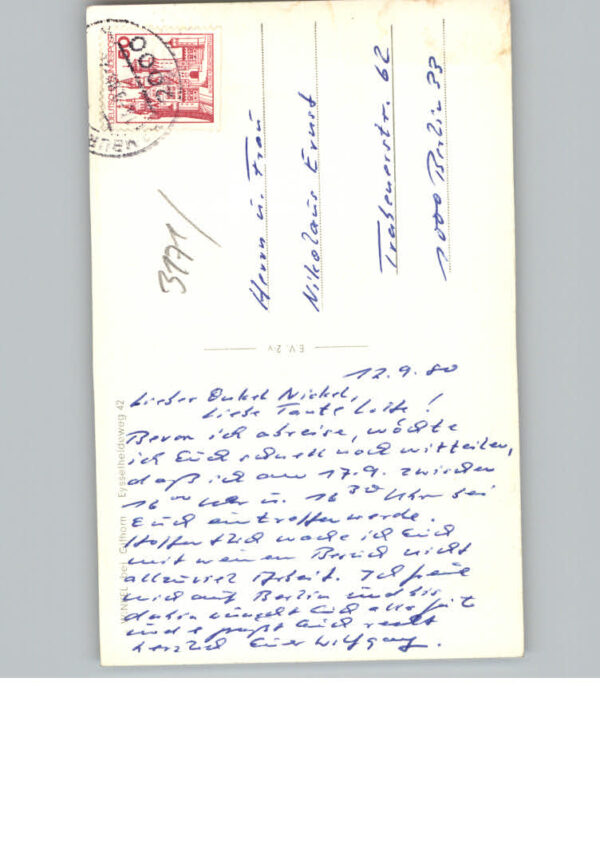 Herrn u. Frau
Nikolaus Ernst
Trabenerstr. 62
1000 Berlin 33
3171/
E.V. 2-v
12.9.80
Lieber Onkel Nickel,
Liebe Tante Lotte!
Bevor ich abreise, möchte
ich Euch schnell noch mitteilen,
daß ich am 17.9. zwischen
16 00 Uhr u. 16 30 Uhr bei
Euch eintreffen werde.
Hoffentlich mache ich Euch
mit meinem Besuch nicht
allzuviel Arbeit. Ich freue
mich auf Berlin und bis
dahin wünscht Euch alles Gute
und grüßt Euch recht
herzlich Euer Wolfgang.
WINKEL bei Gifhorn Eysselheideweg 42